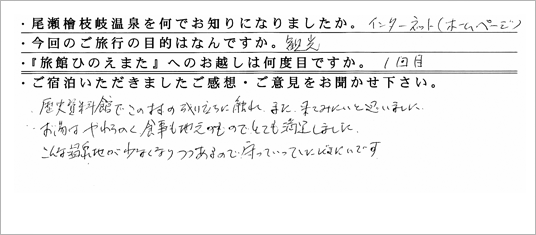 ・尾瀬檜枝岐温泉を何でお知りになりましたか。インターネット(ホームページ)
・今回のご旅行の目的はなんですか。観光
・『旅館ひのえまた』へのお越しは何度目ですか。1回目
・ご宿泊いただきましたご感想・ご意見をお聞かせ下さい。
歴史資料館でこの村の成り立ちに触れ、また、来てみたいと思いました。
お湯はやわらかく食事も地元のものでとても満足しました。
こんな
地が少なくなりつつあるので守っていっていただきたいです